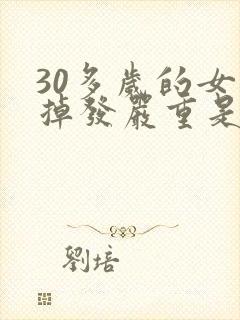 30多歲的女
掉發嚴重是
劉培